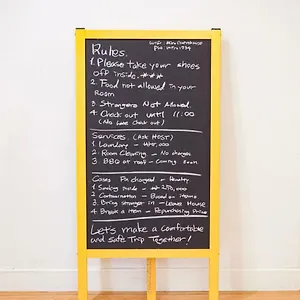 Rules.
1. Please take your shoes
off inside. ***
2. Food not allowed in your
Room
3. Strangers Not Allowed.
4. Check out until 11:00
(No Late Check out)
Services. (Ask HOST)
1. Laundry -
2. Room Cleaning - No charges
3. BBQ at roof - Coming Soon
Cases Pin charged -
1. Smoking inside -
2. Contamination - Based on items
3. Bring stranger in - Leave House
4. Break a item - Repurchasing Price
Let's make a comfortable
and safe Trip Together!